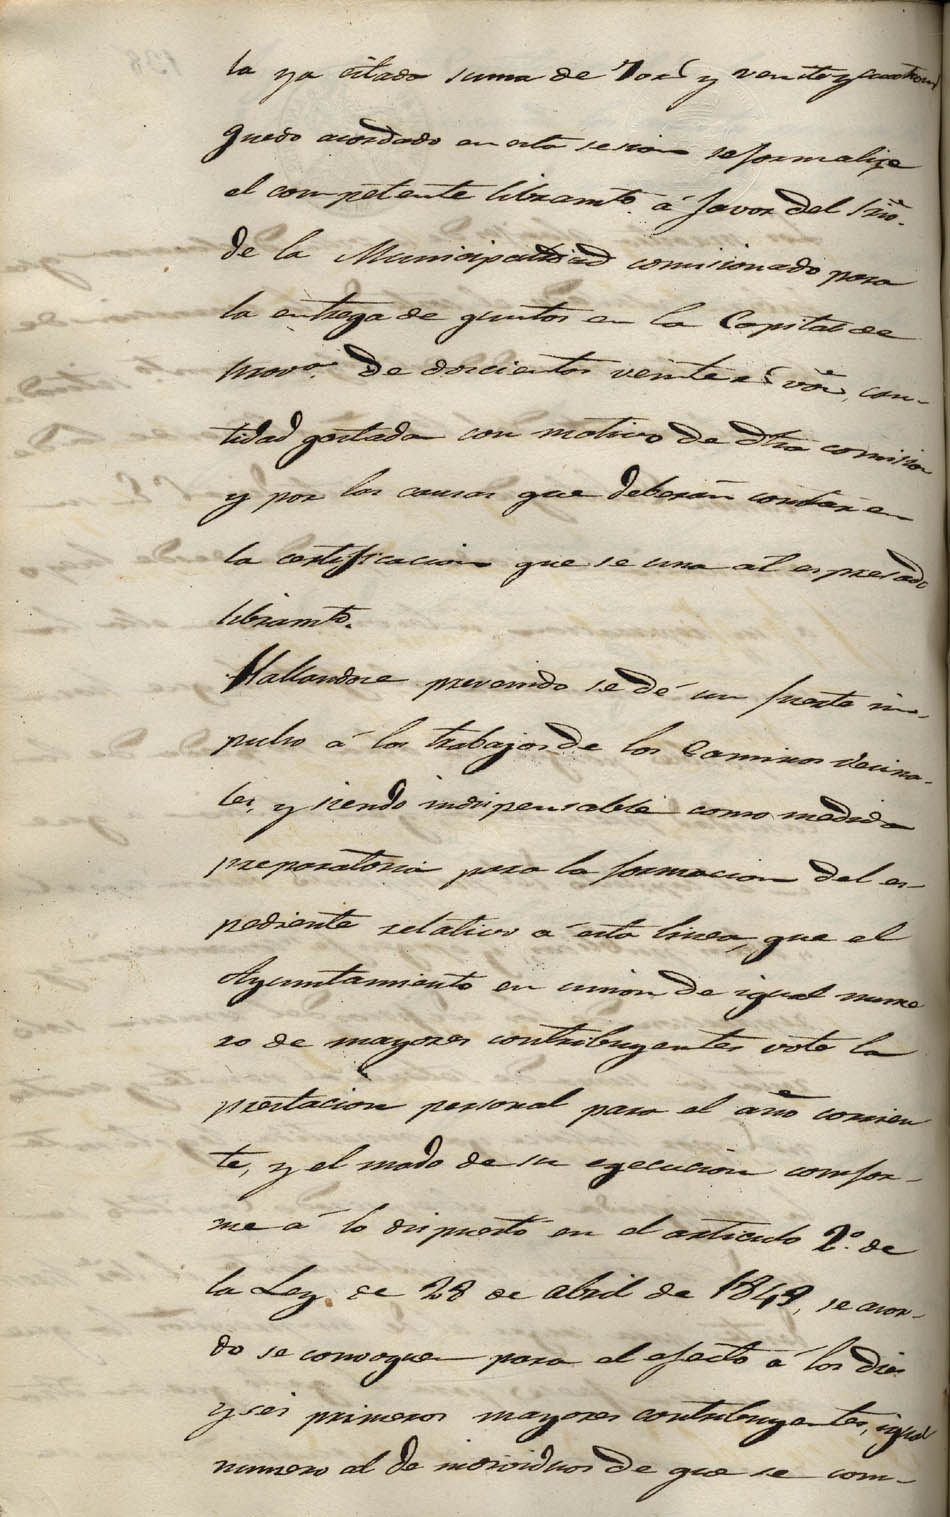 la ya citada suma de 70 rs y veinte y cuatro m
Quedó acordado en esta sesion se formalize
el competente libramto. á favor del Srio.
de la Municipalidad comisionado para
la entrega de quintos en la Capital de
Prova. de doscientos veinte rs von, can-
tidad gastada con motivo de dha comision
y por las causas que deberán constar en
la certificacion que se una al espresado
libramto.
Hallandose prevenido se dé un fuerte im-
pulso á los trabajos de los Caminos vecina-
les, y siendo indispensable como medida
preparatoria para la formacion del es-
pediente relativo á esta linea, que el
Ayuntamiento en union de igual nume
ro de mayores contribuyentes vote la
prestacion personal para el año corrien
te, y el modo de su egecucion confor-
me á lo dispuesto en el articulo 2º. de
la Ley de 28 de abril de 1849, se acor-
do se convoquen para el efecto á los diez
y seis primeros mayores contribuyentes, igual
numero al de individuos de que se com-